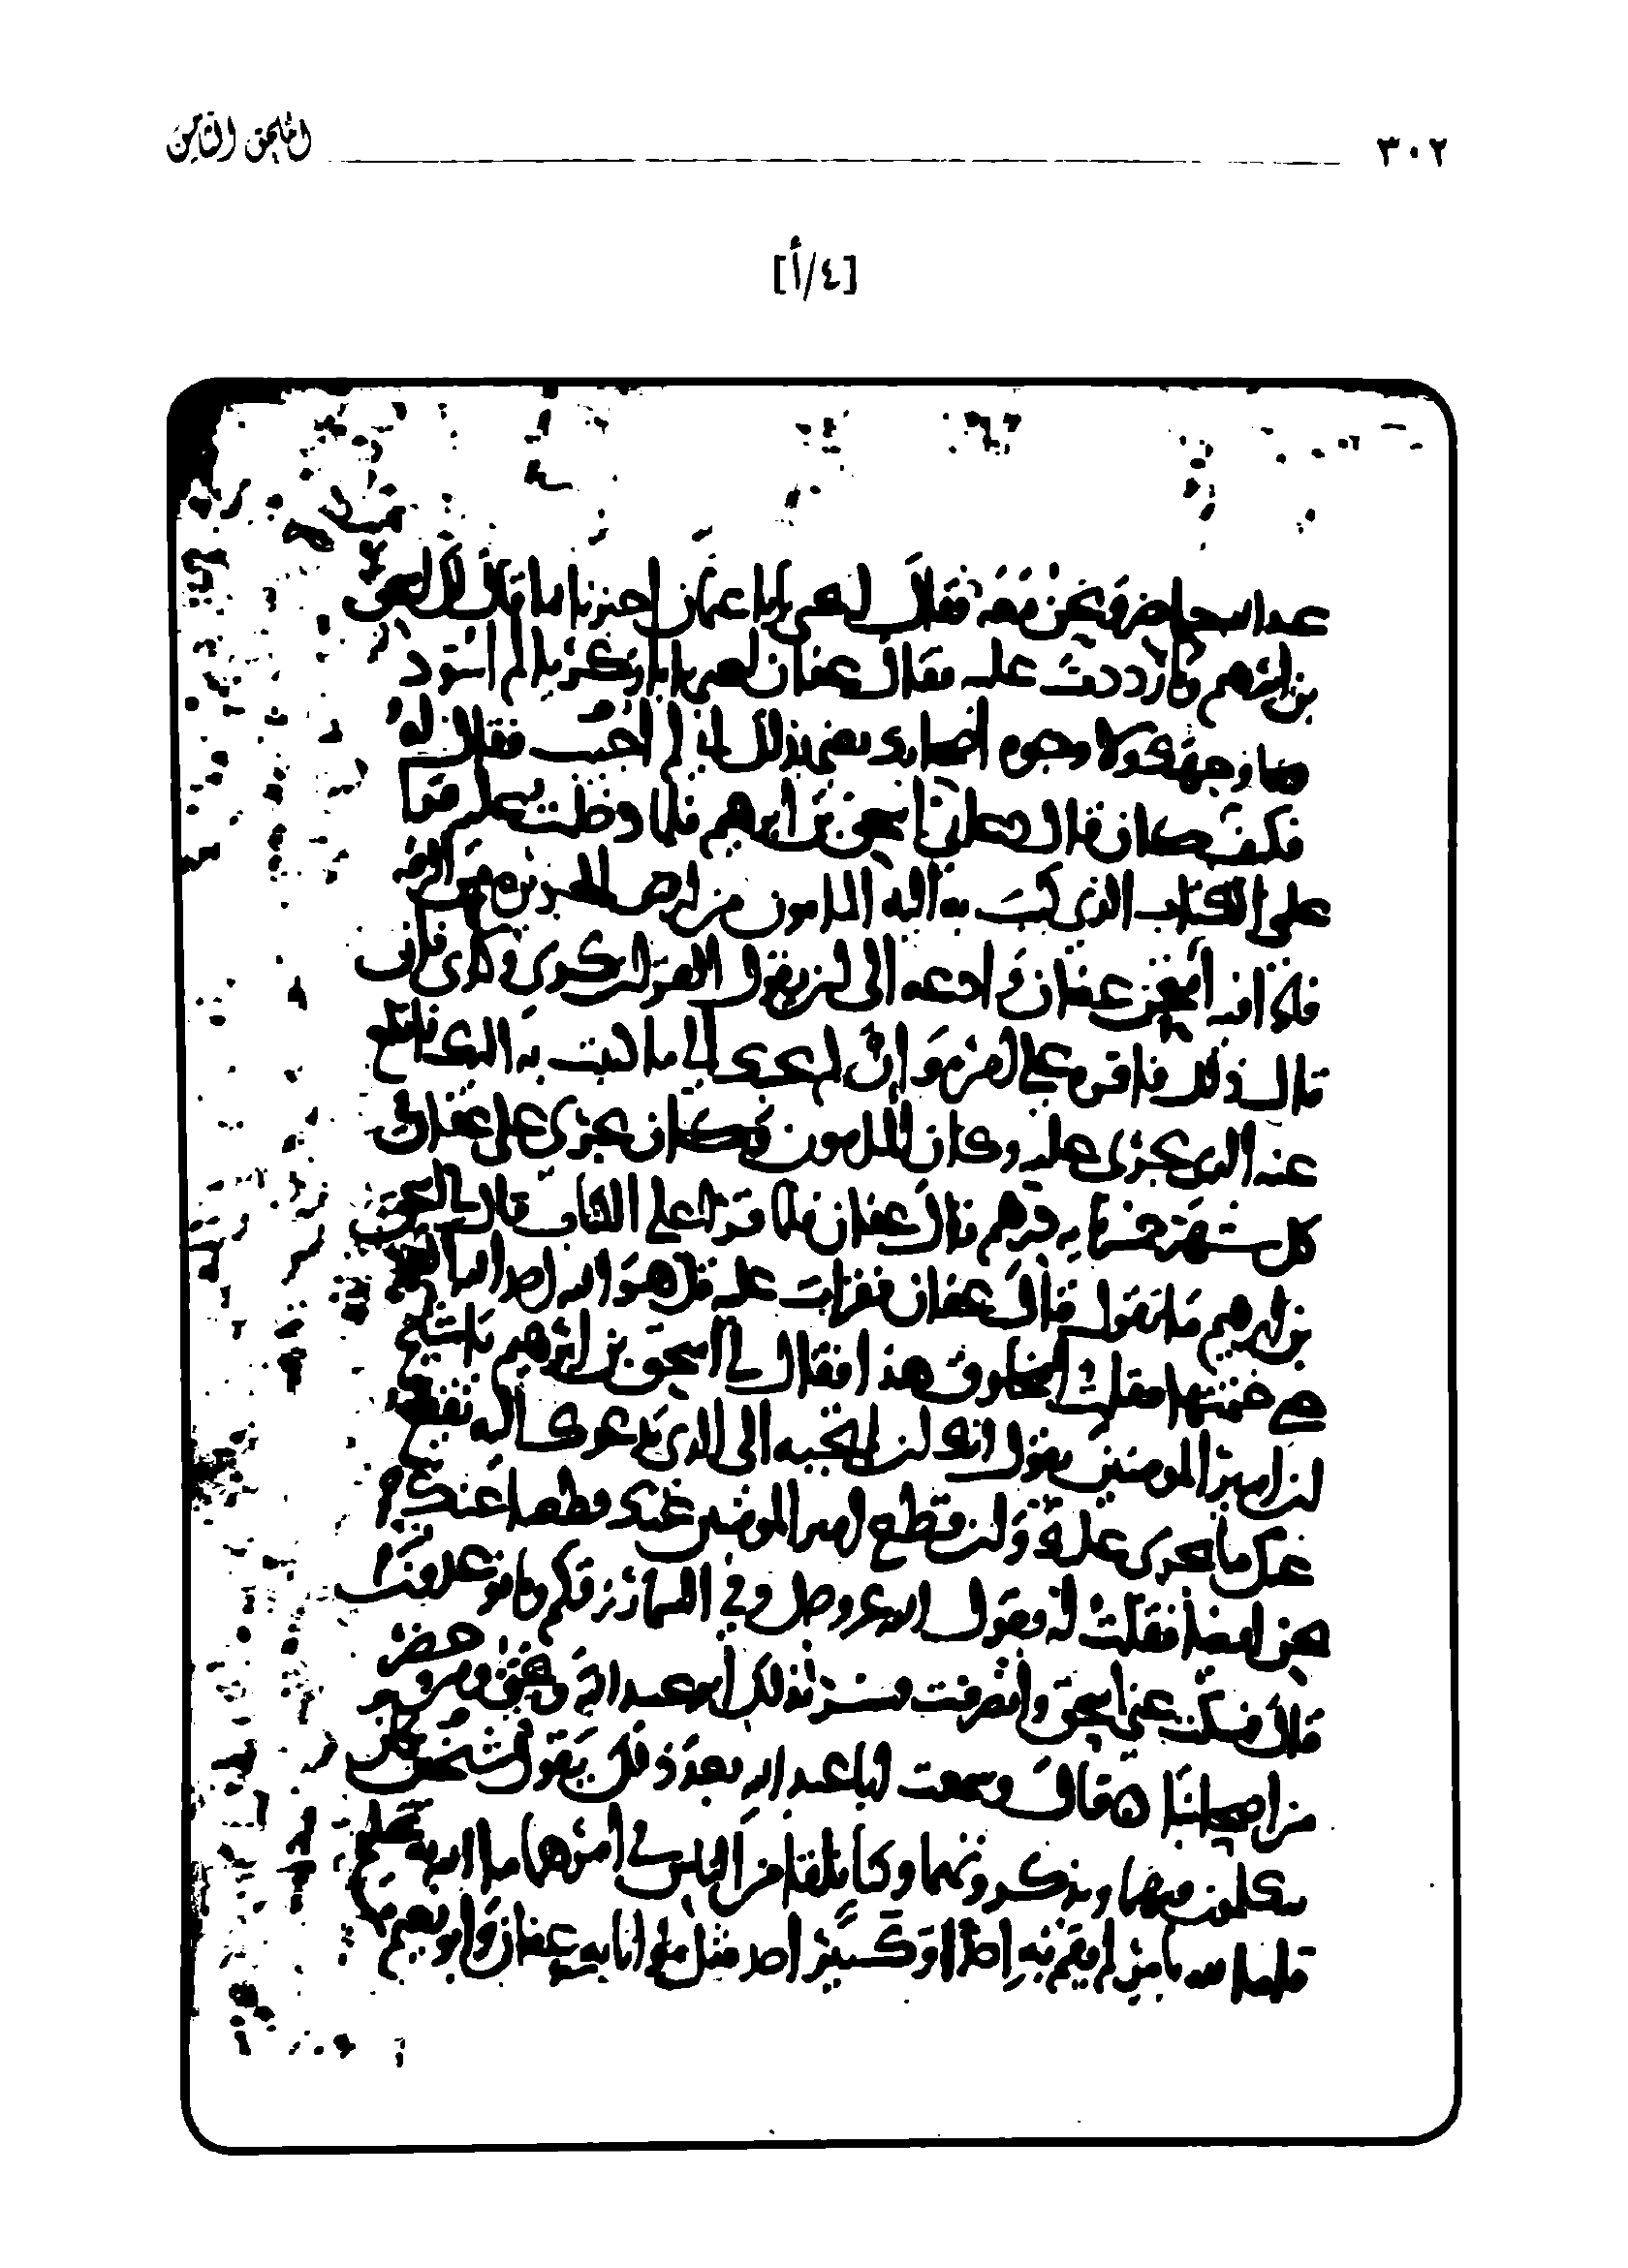 الملحق الثامن ٣٠٢
[٤/أ]
حاضر ونحن معه فقال له يحيى يابا عثمان اخبرنا ما قال لك اسحق
بن ابرهيم وما رددت عليه فقال عفان ليحيى يابا زكريا لم اسود
وجهك ولا وجوه اصحابك يعني بذلك اني لم اجب فقال له
فكيف كان قال دعاني اسحق بن ابرهيم فلما دخلت عليه قرا
على الكتاب الذي كتب به اليه المامون من ارض الجزيرة من الرقة
فاذا فيه امتحن عفان وادعه الى ان يقول القران كذى وكذى فان
قال ذلك فاقره على امره وان لم يجبك الى ما كتبت به اليك فاقطع
عنه الذي يجرى عليه وكان المامون يجرى على عفان
كل شهر خمس مايه درهم قال عفان فلما قرا على الكتاب قال لي اسحق
بن ابرهيم ما تقول قال عفان فقرات عليه قل هو الله احد الله الصمد
حتى ختمتها فقلت امخلوق هذا فقال لي اسحق بن ابرهيم يا شيخ
ان امير المومنين يقول انك ان لم تجبه الى الذي يدعوك اليه نقطع
عنك ما يجرى عليك وان قطع امير المومنين عنك قطعنا عنك
نحن ايضا فقلت له يقول الله عز وجل وفي السماء رزقكم وما توعدون
قال فسكت عني اسحق وانصرفت فسر بذلك ابو عبد الله ويحيى ومن حضر
من اصحابنا ٥ قال وسمعت ابا عبد الله بعد ذلك يقول شيخين كان
الناس يتكلمون فيهما ويذكرونهما وكنا نلقا من الناس في امرهما ما الله به عليم
قاما لله بامر لم يقم به احد او كبير احد مثل ما قاما به عفان وابو نعيم